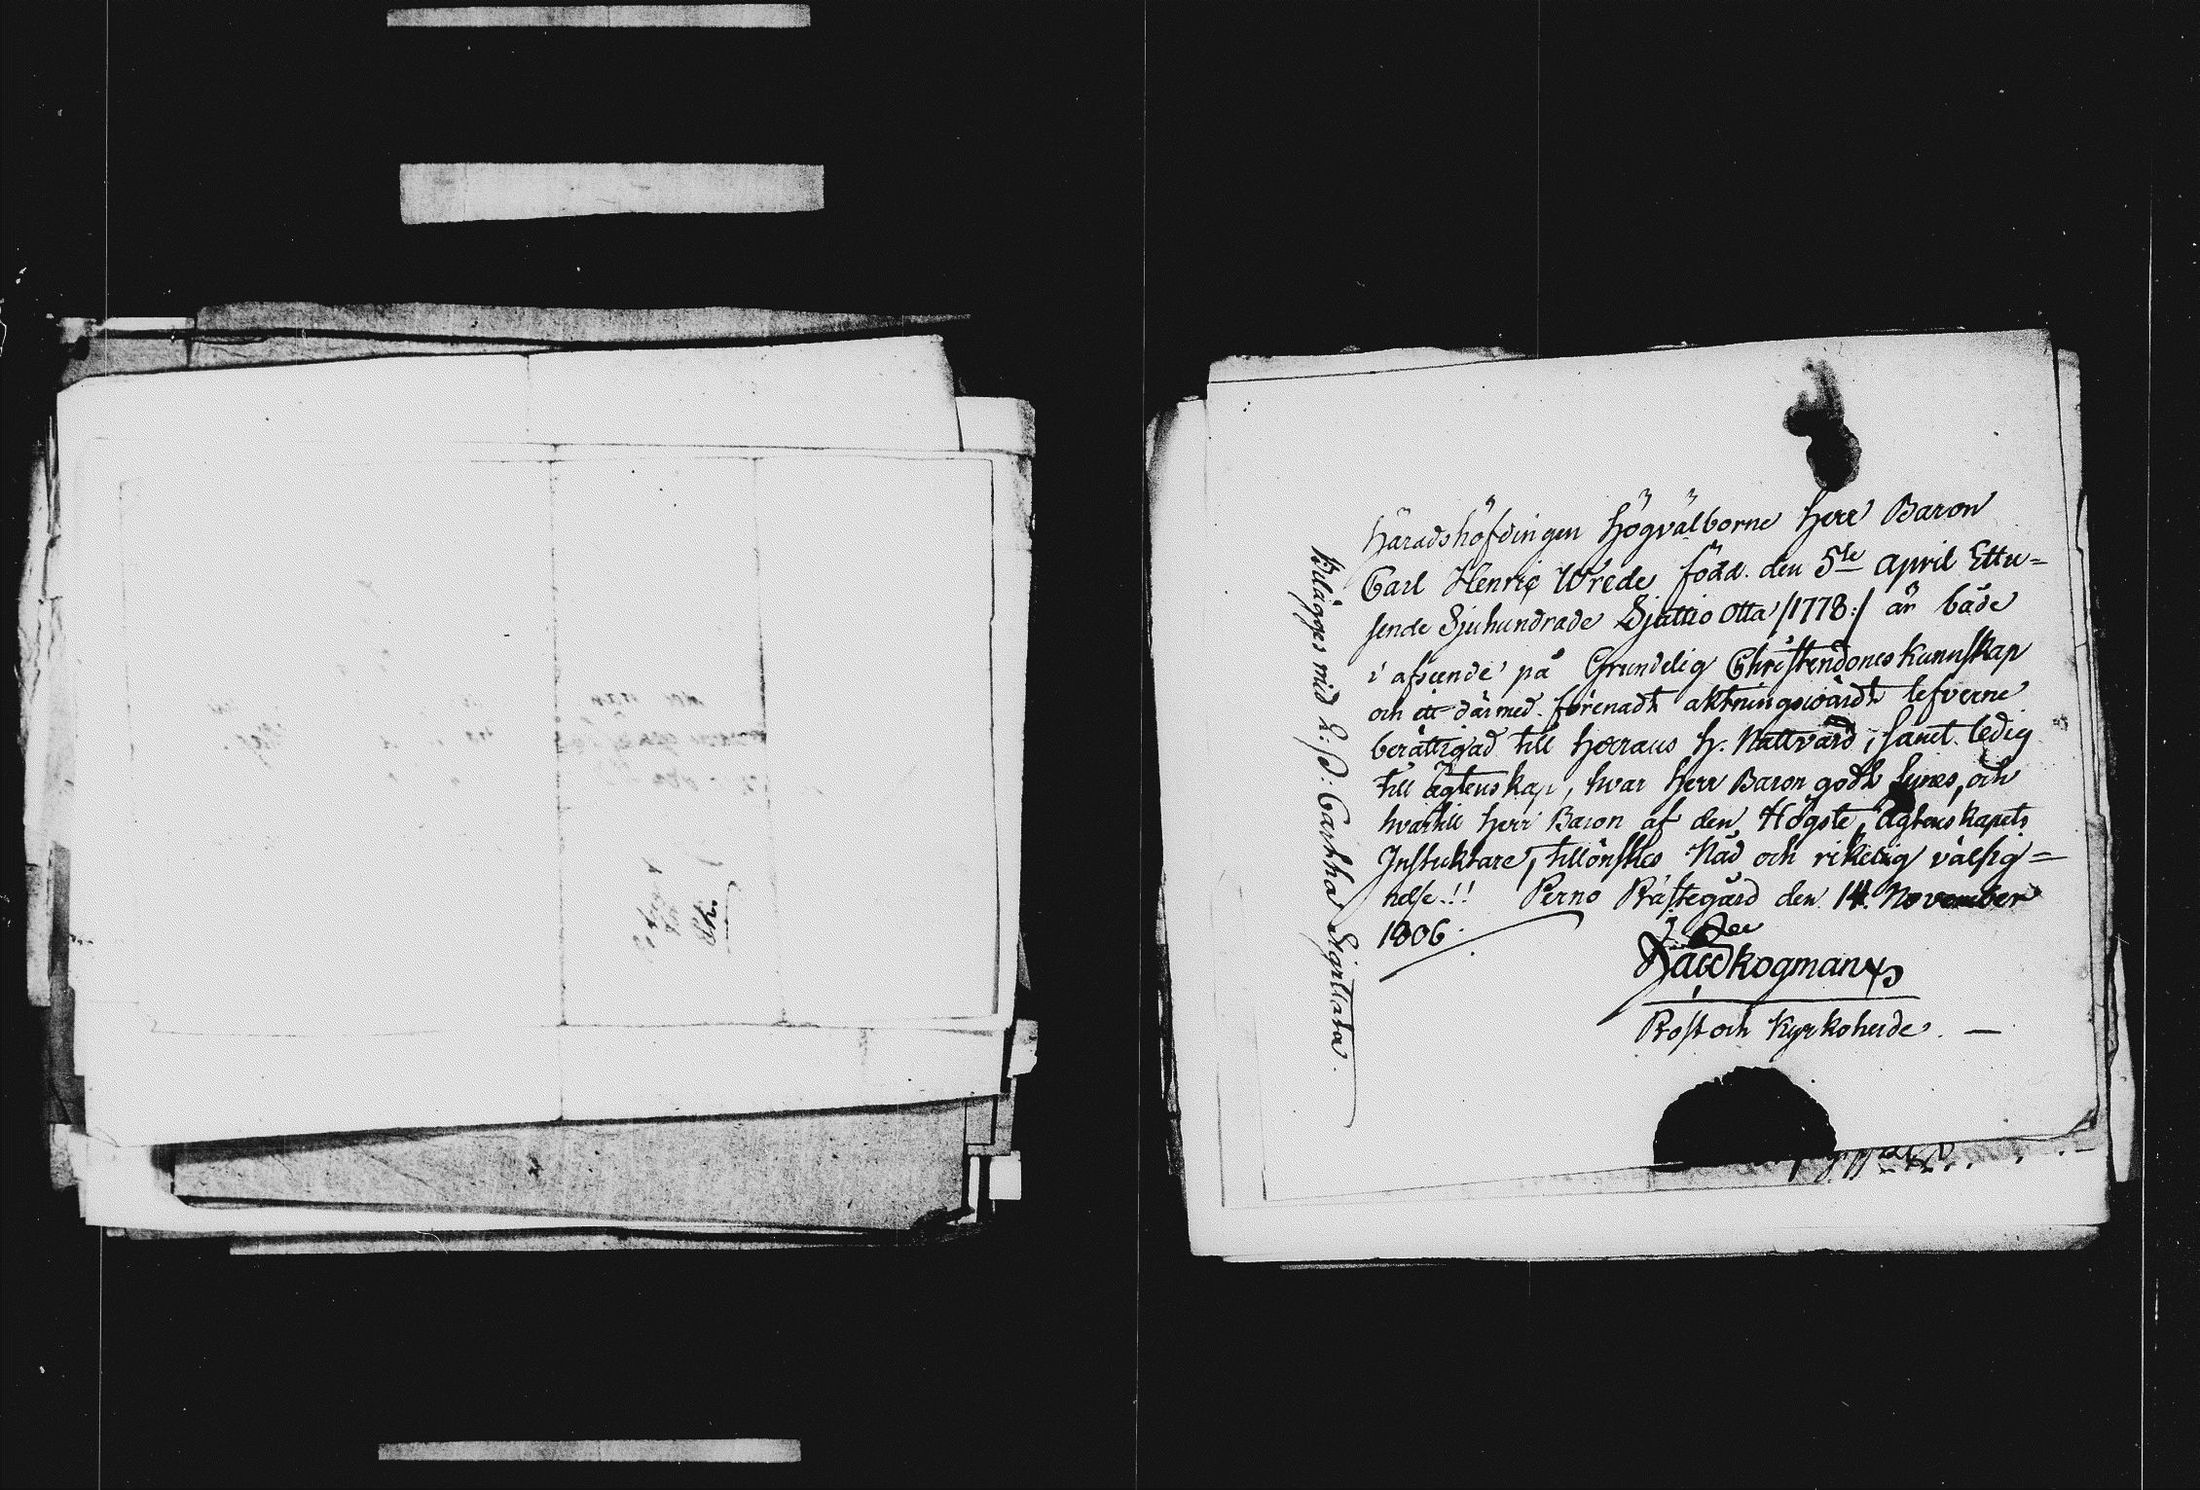 Häradshöfdingen Högvälborne Herr Baron
Carl Henric Wrede född. den 5te April Ettu=
sende Sjuhundrade Sjuttio Otta /:1778:/ är både
i afseende på Grundelig Christendoms kunnskap
och därmed förenadt aktningswärdt lefverne
berättigad till Herrans H. Nattvard, samt ledig
till Ägtenskap, hvar Herr Baron godt synes, och
hvartill Herr Baron af den Högste, Ägtenskapets
Instiktare, tillönskes Nåd och rikelig välsig=
nelse.!! Perno Prästegård den 14. November
1806.
Prost och Kyrkoherde. —
Bilägges med L: S: Carthha Sigillata.